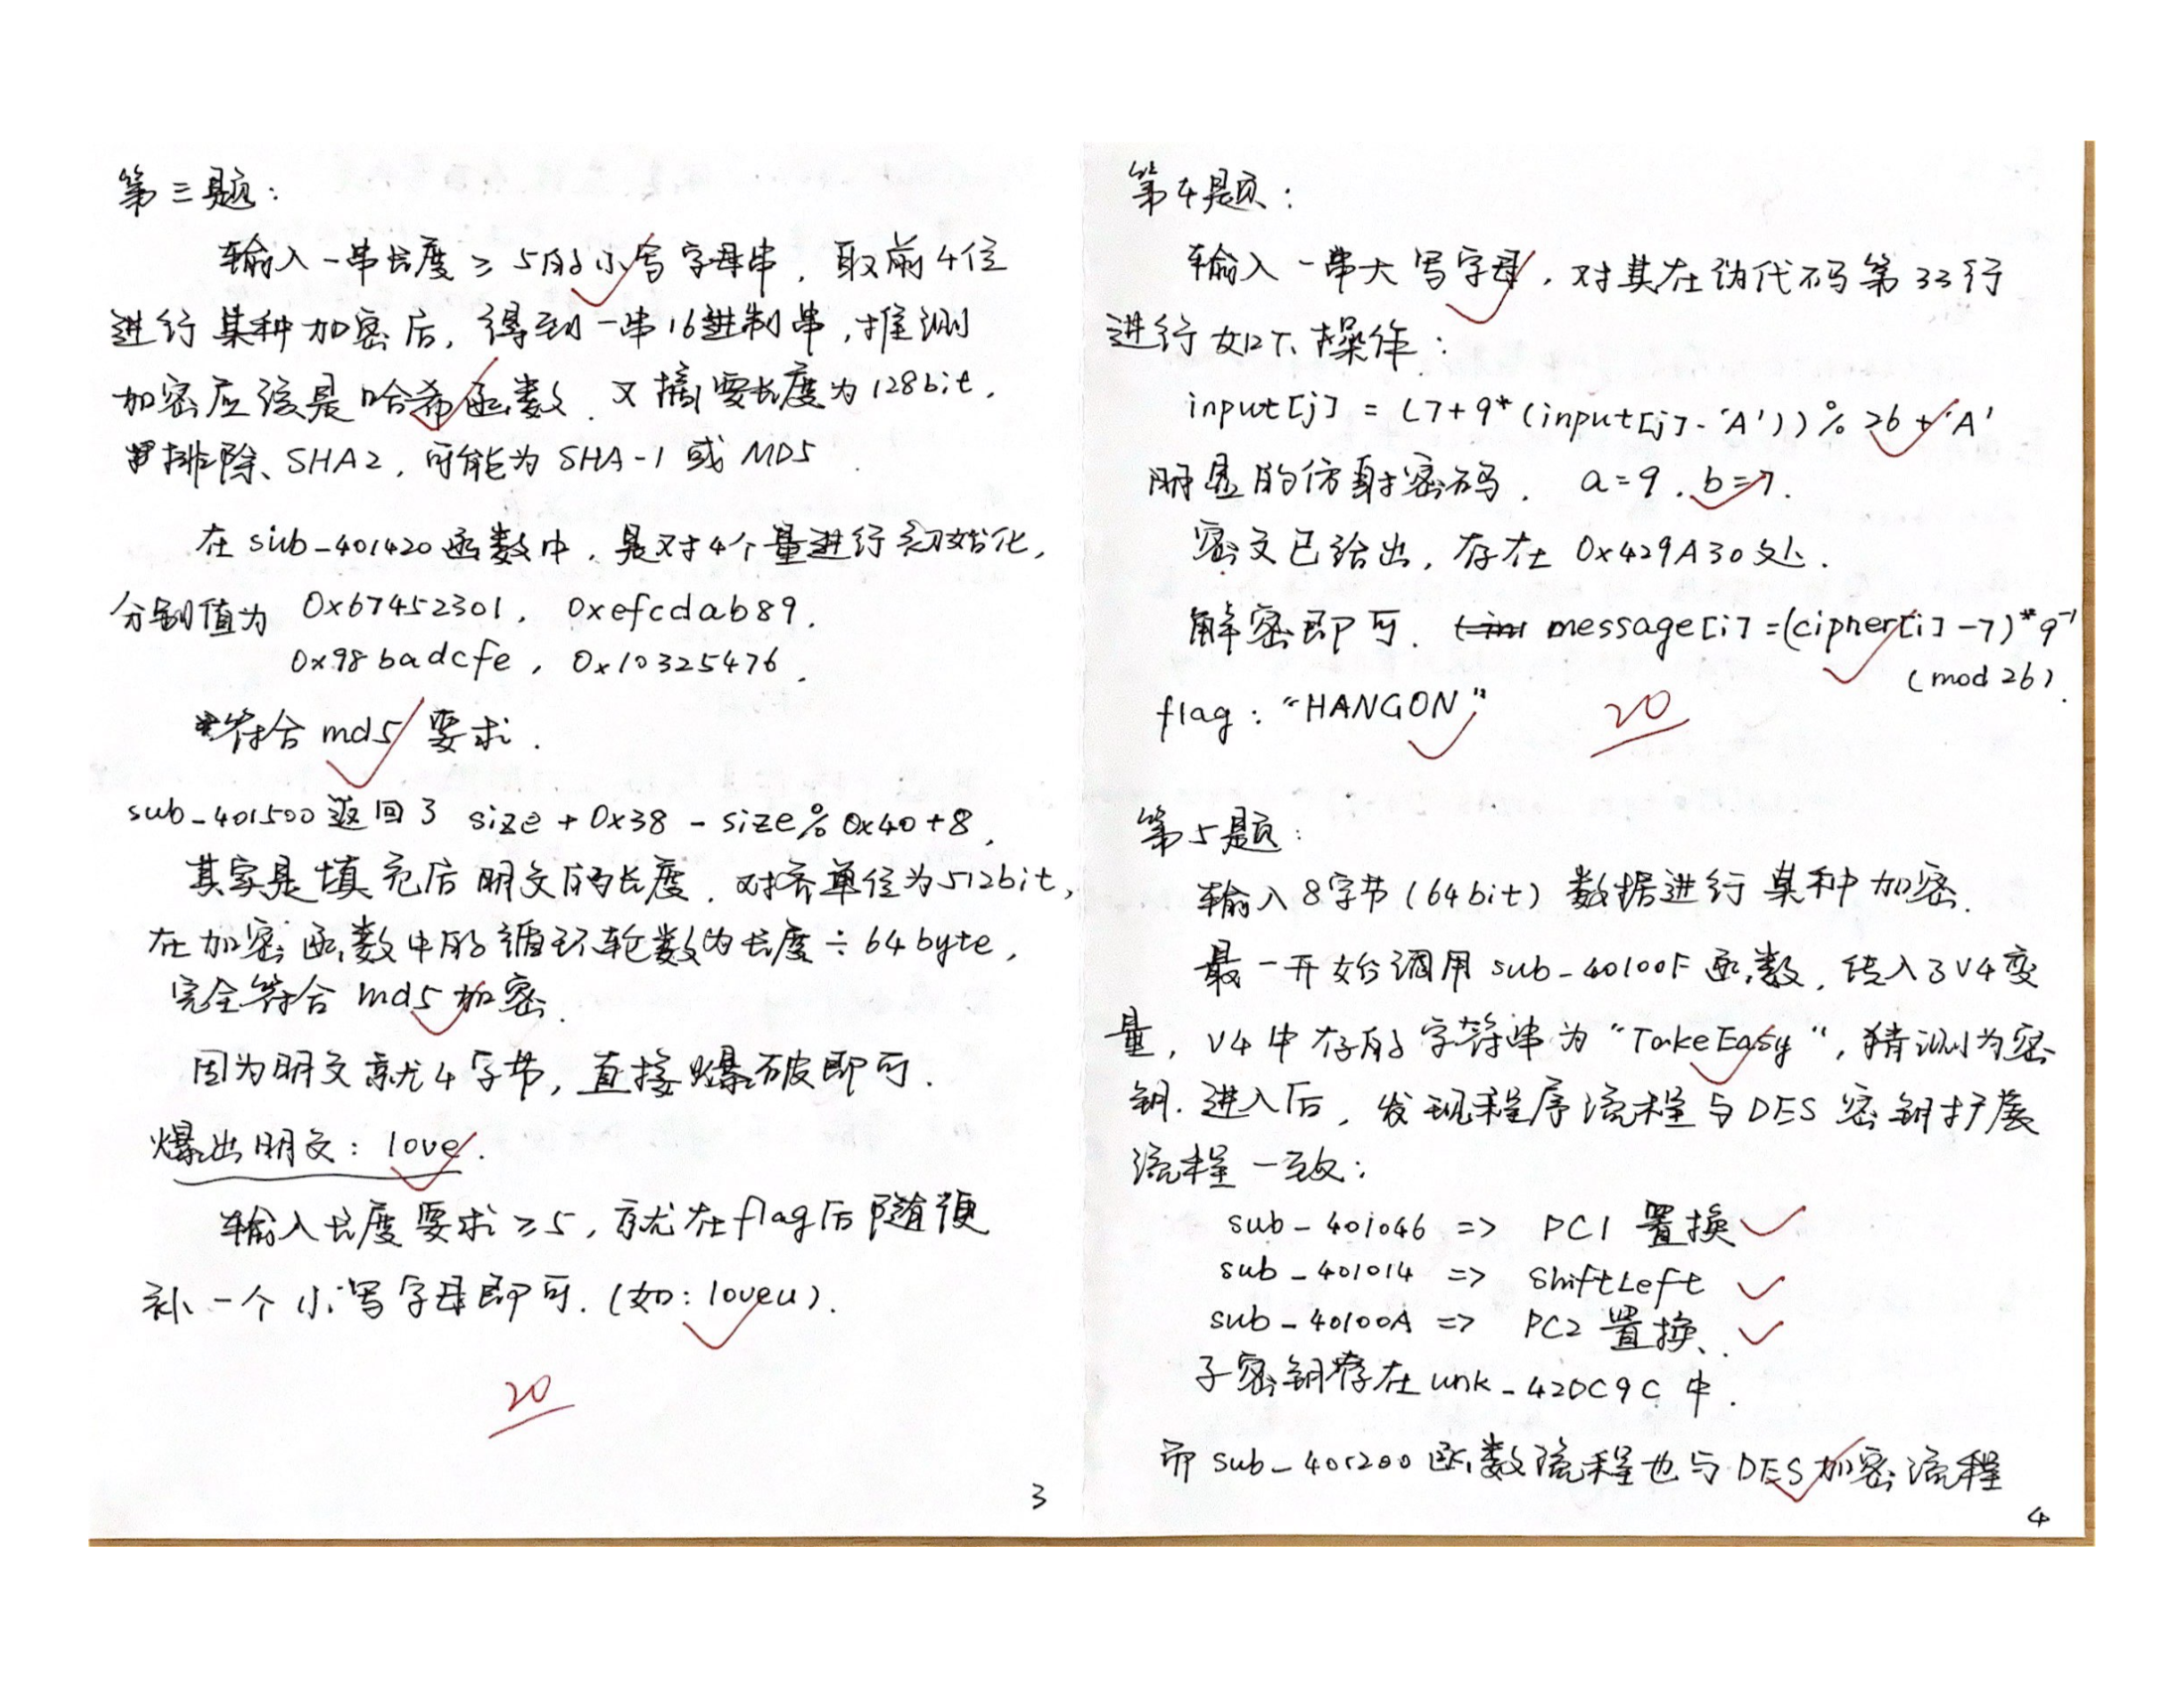 第三题：
输入一串长度≥5的小写字母串，取前4位
进行某种加密后，得到一串16进制串，推测
加密应该是哈希函数．又摘要长度为128bit，
排除、SHA2，可能为SHA-1或MD5．
在sub_401420函数中，是对4个量进行初始化，
分别值为 0x67452301, 0xefcdab89,
0x98badcfe, 0x10325476.
符合md5要求．
sub_401500返回了 size+0x38-size%0x40+8，
其实是填充后明文的长度．对齐单位为512bit，
在加密函数中的循环轮数为长度÷64byte，
完全符合md5加密．
因为明文就4字节，直接爆破即可．
爆出明文：love．
输入长度要求≥5，就在flag后随便
补一个小写字母即可．(如：loveu)．
20
3
第4题：
输入一串大写字母，对其在伪代码第33行
进行如下操作：
input[j] = (7+9*(input[j]-'A'))%26+'A'
明显的仿射密码．a=9．b=7．
密文已给出，存在0x429A30处．
解密即可．message[i]=(cipher[i]-7)*9⁻¹
(mod 26)．
flag："HANGON"
20
第5题：
输入8字节(64bit)数据进行某种加密．
最一开始调用sub_40100F函数，传入了V4变
量，V4中存的字符串为"TakeEasy"，猜测为密
钥．进入后，发现程序流程与DES密钥扩展
流程一致：
sub_401046 => PC1 置换
sub_401014 => ShiftLeft
sub_40100A => PC2 置换．
子密钥存在unk_42DC9C中．
而sub_401200函数流程也与DES加密流程
4